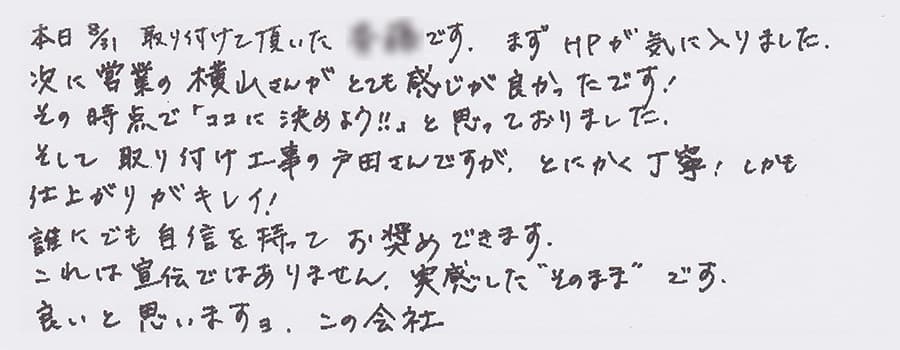 本日8/31 取り付けて頂いた です. まず HPが気に入りました.
次に営業の横山さんがとても感じが良かったです!
その時点で「ココに決めよう!!」と思っておりました.
そして取り付け工事の戸田さんですが, とにかく丁寧! しかも
仕上がりがキレイ!
誰にでも自信を持ってお奨めできます.
これは宣伝ではありません. 実感した"そのまま"です.
良いと思いますョ. この会社